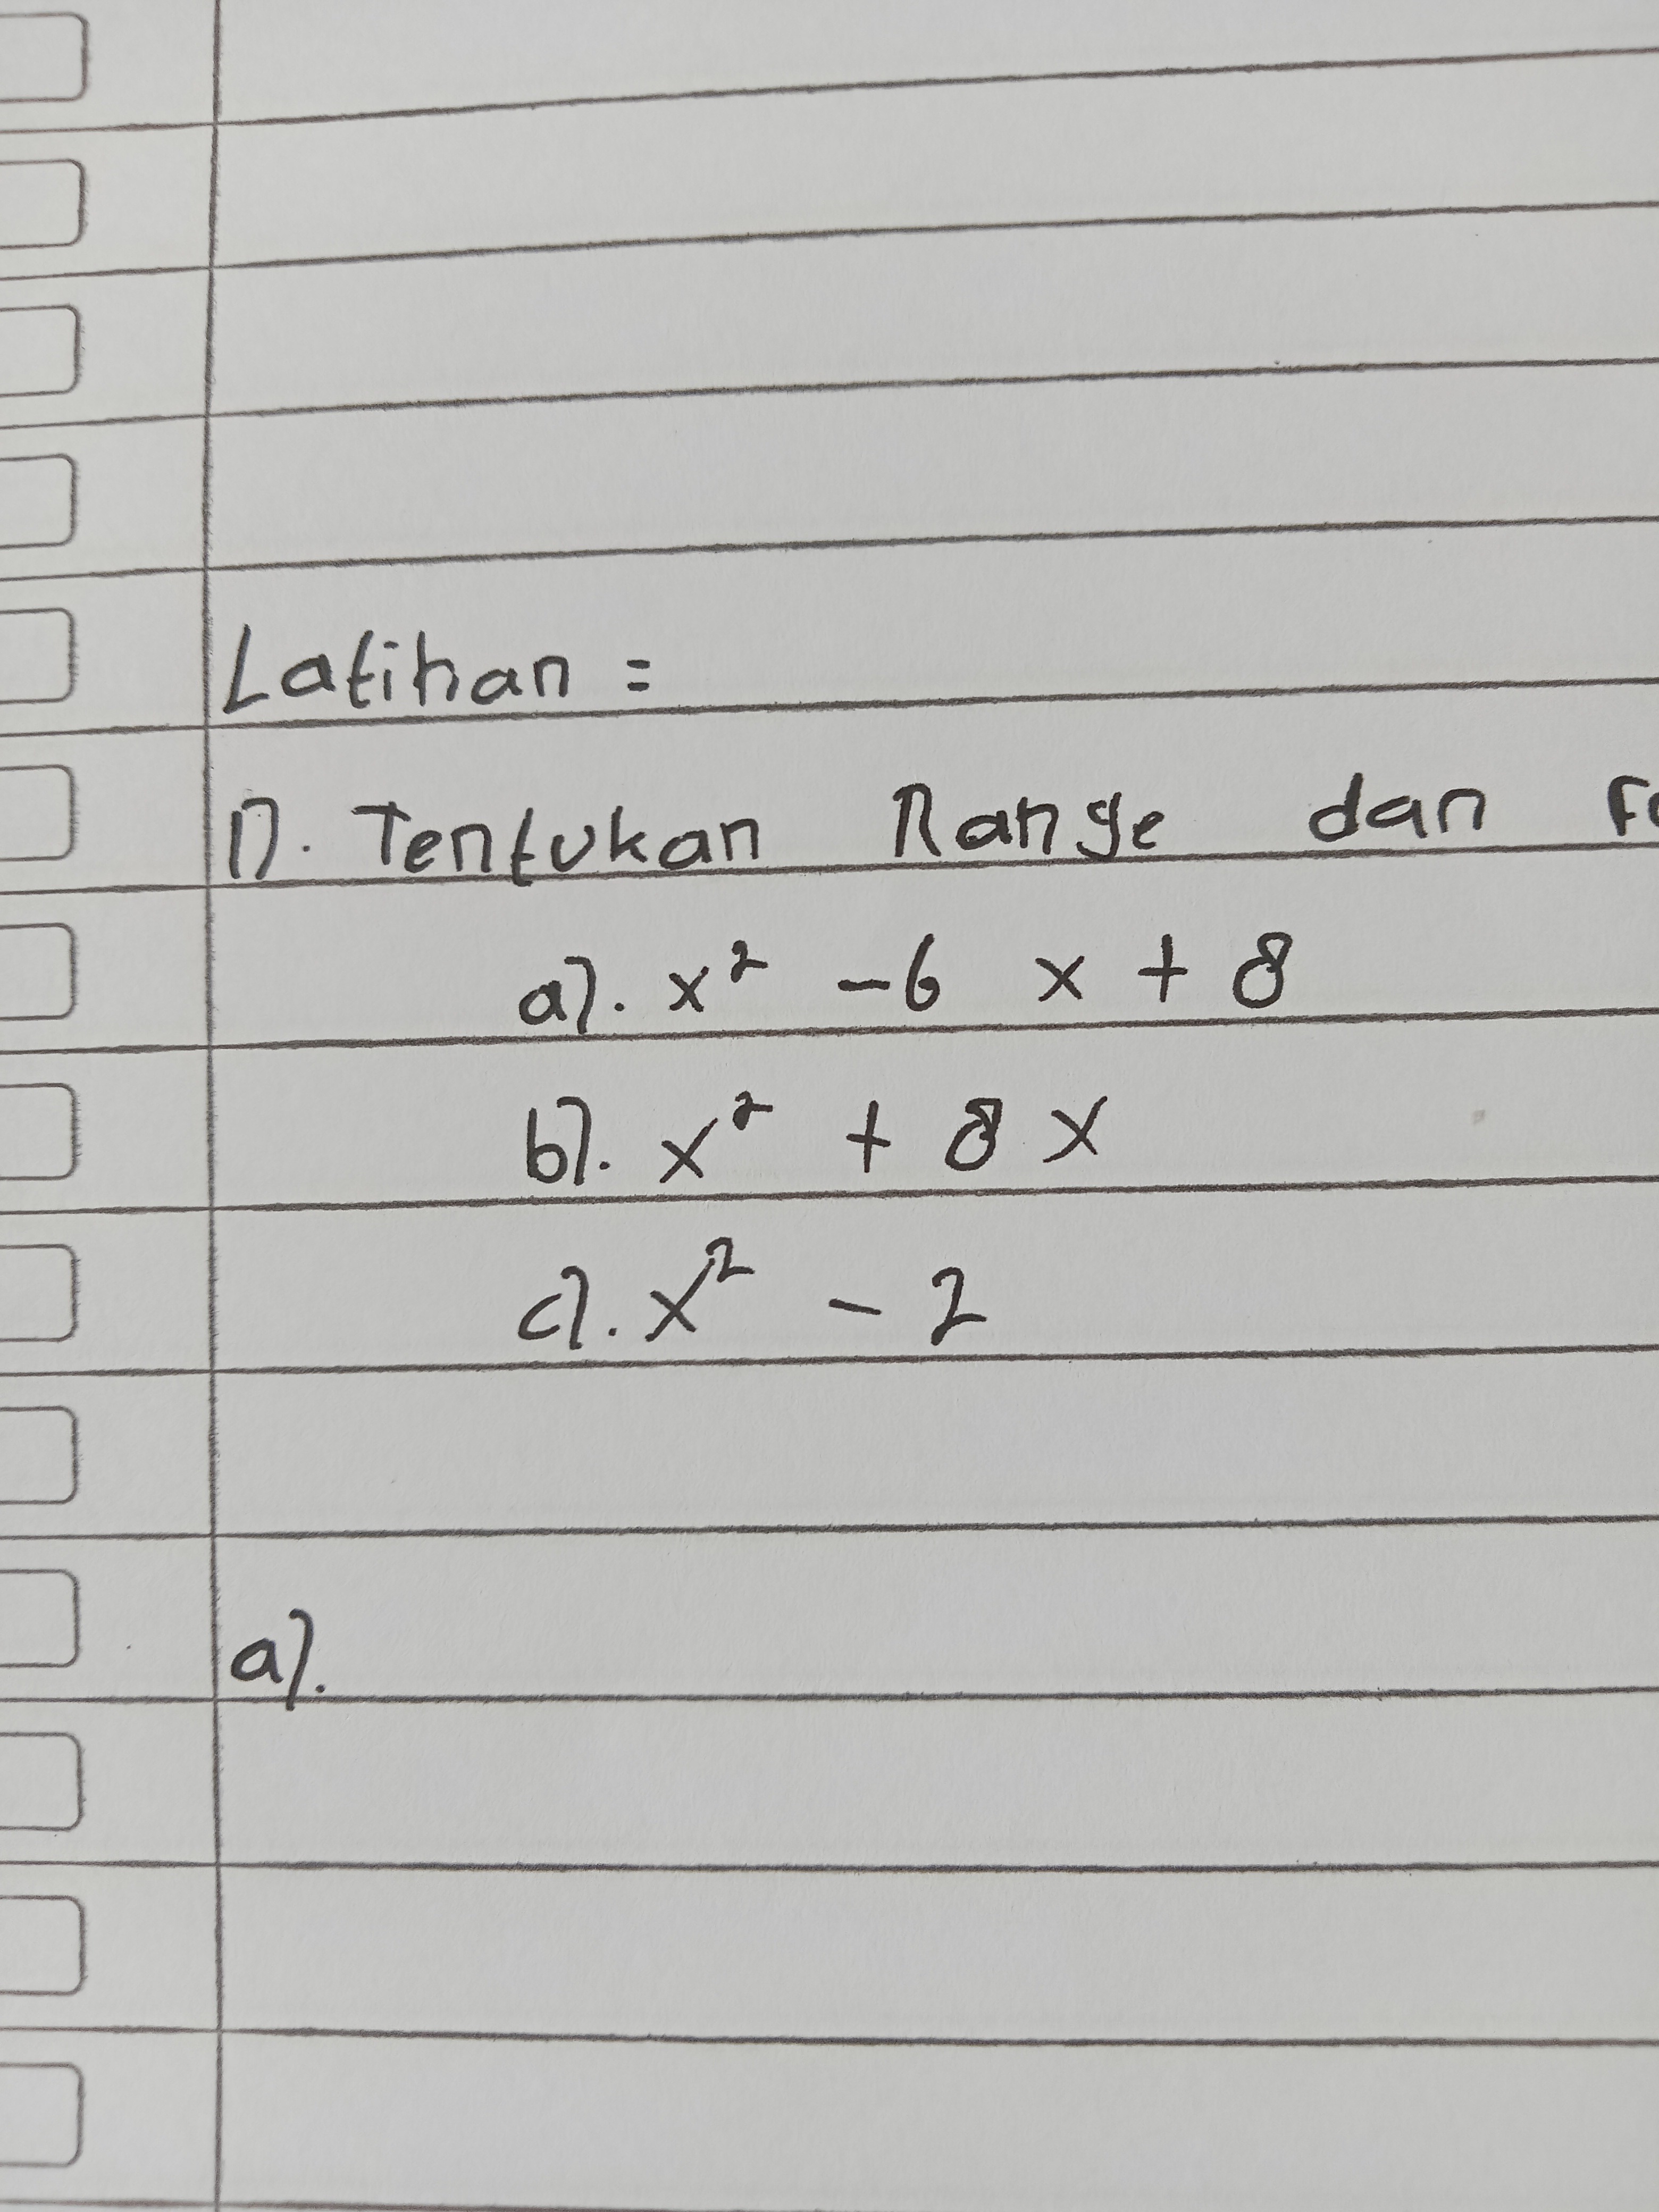 Latihan =
1). Tentukan Range dan
a). x² - 6 x + 8
b). x² + 8 x
c). x² - 2
a).